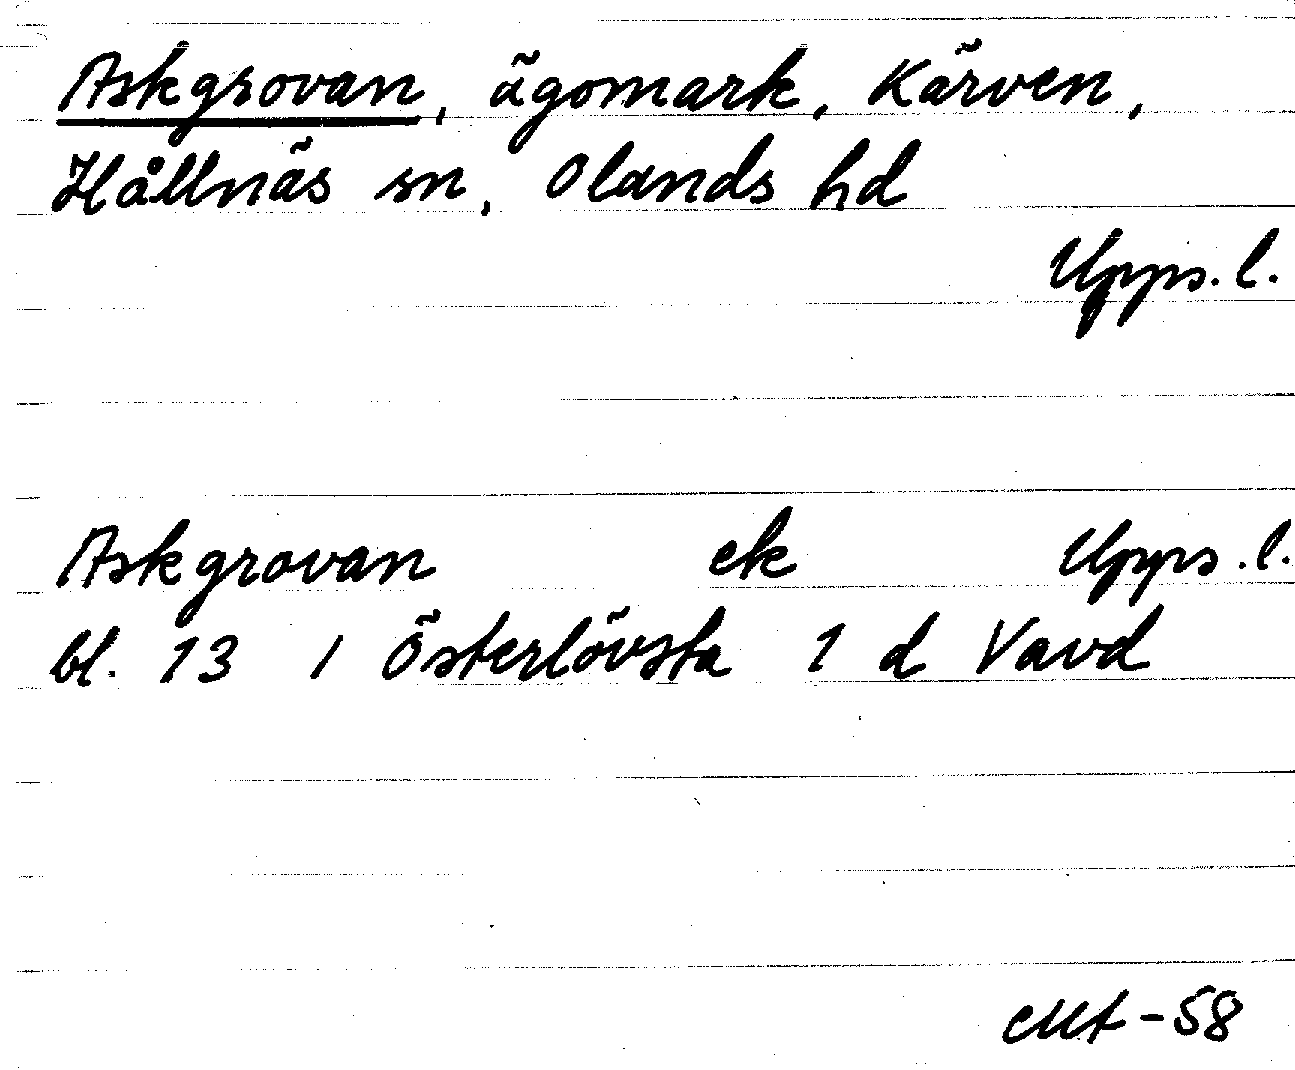 Askgrovan, ägomark, Kärven,
Hållnäs sn, Olands hd
Upps. l.
Askgrovan ek Upps. l.
bl. 13 / Österlövsta 1 d Vavd
-58